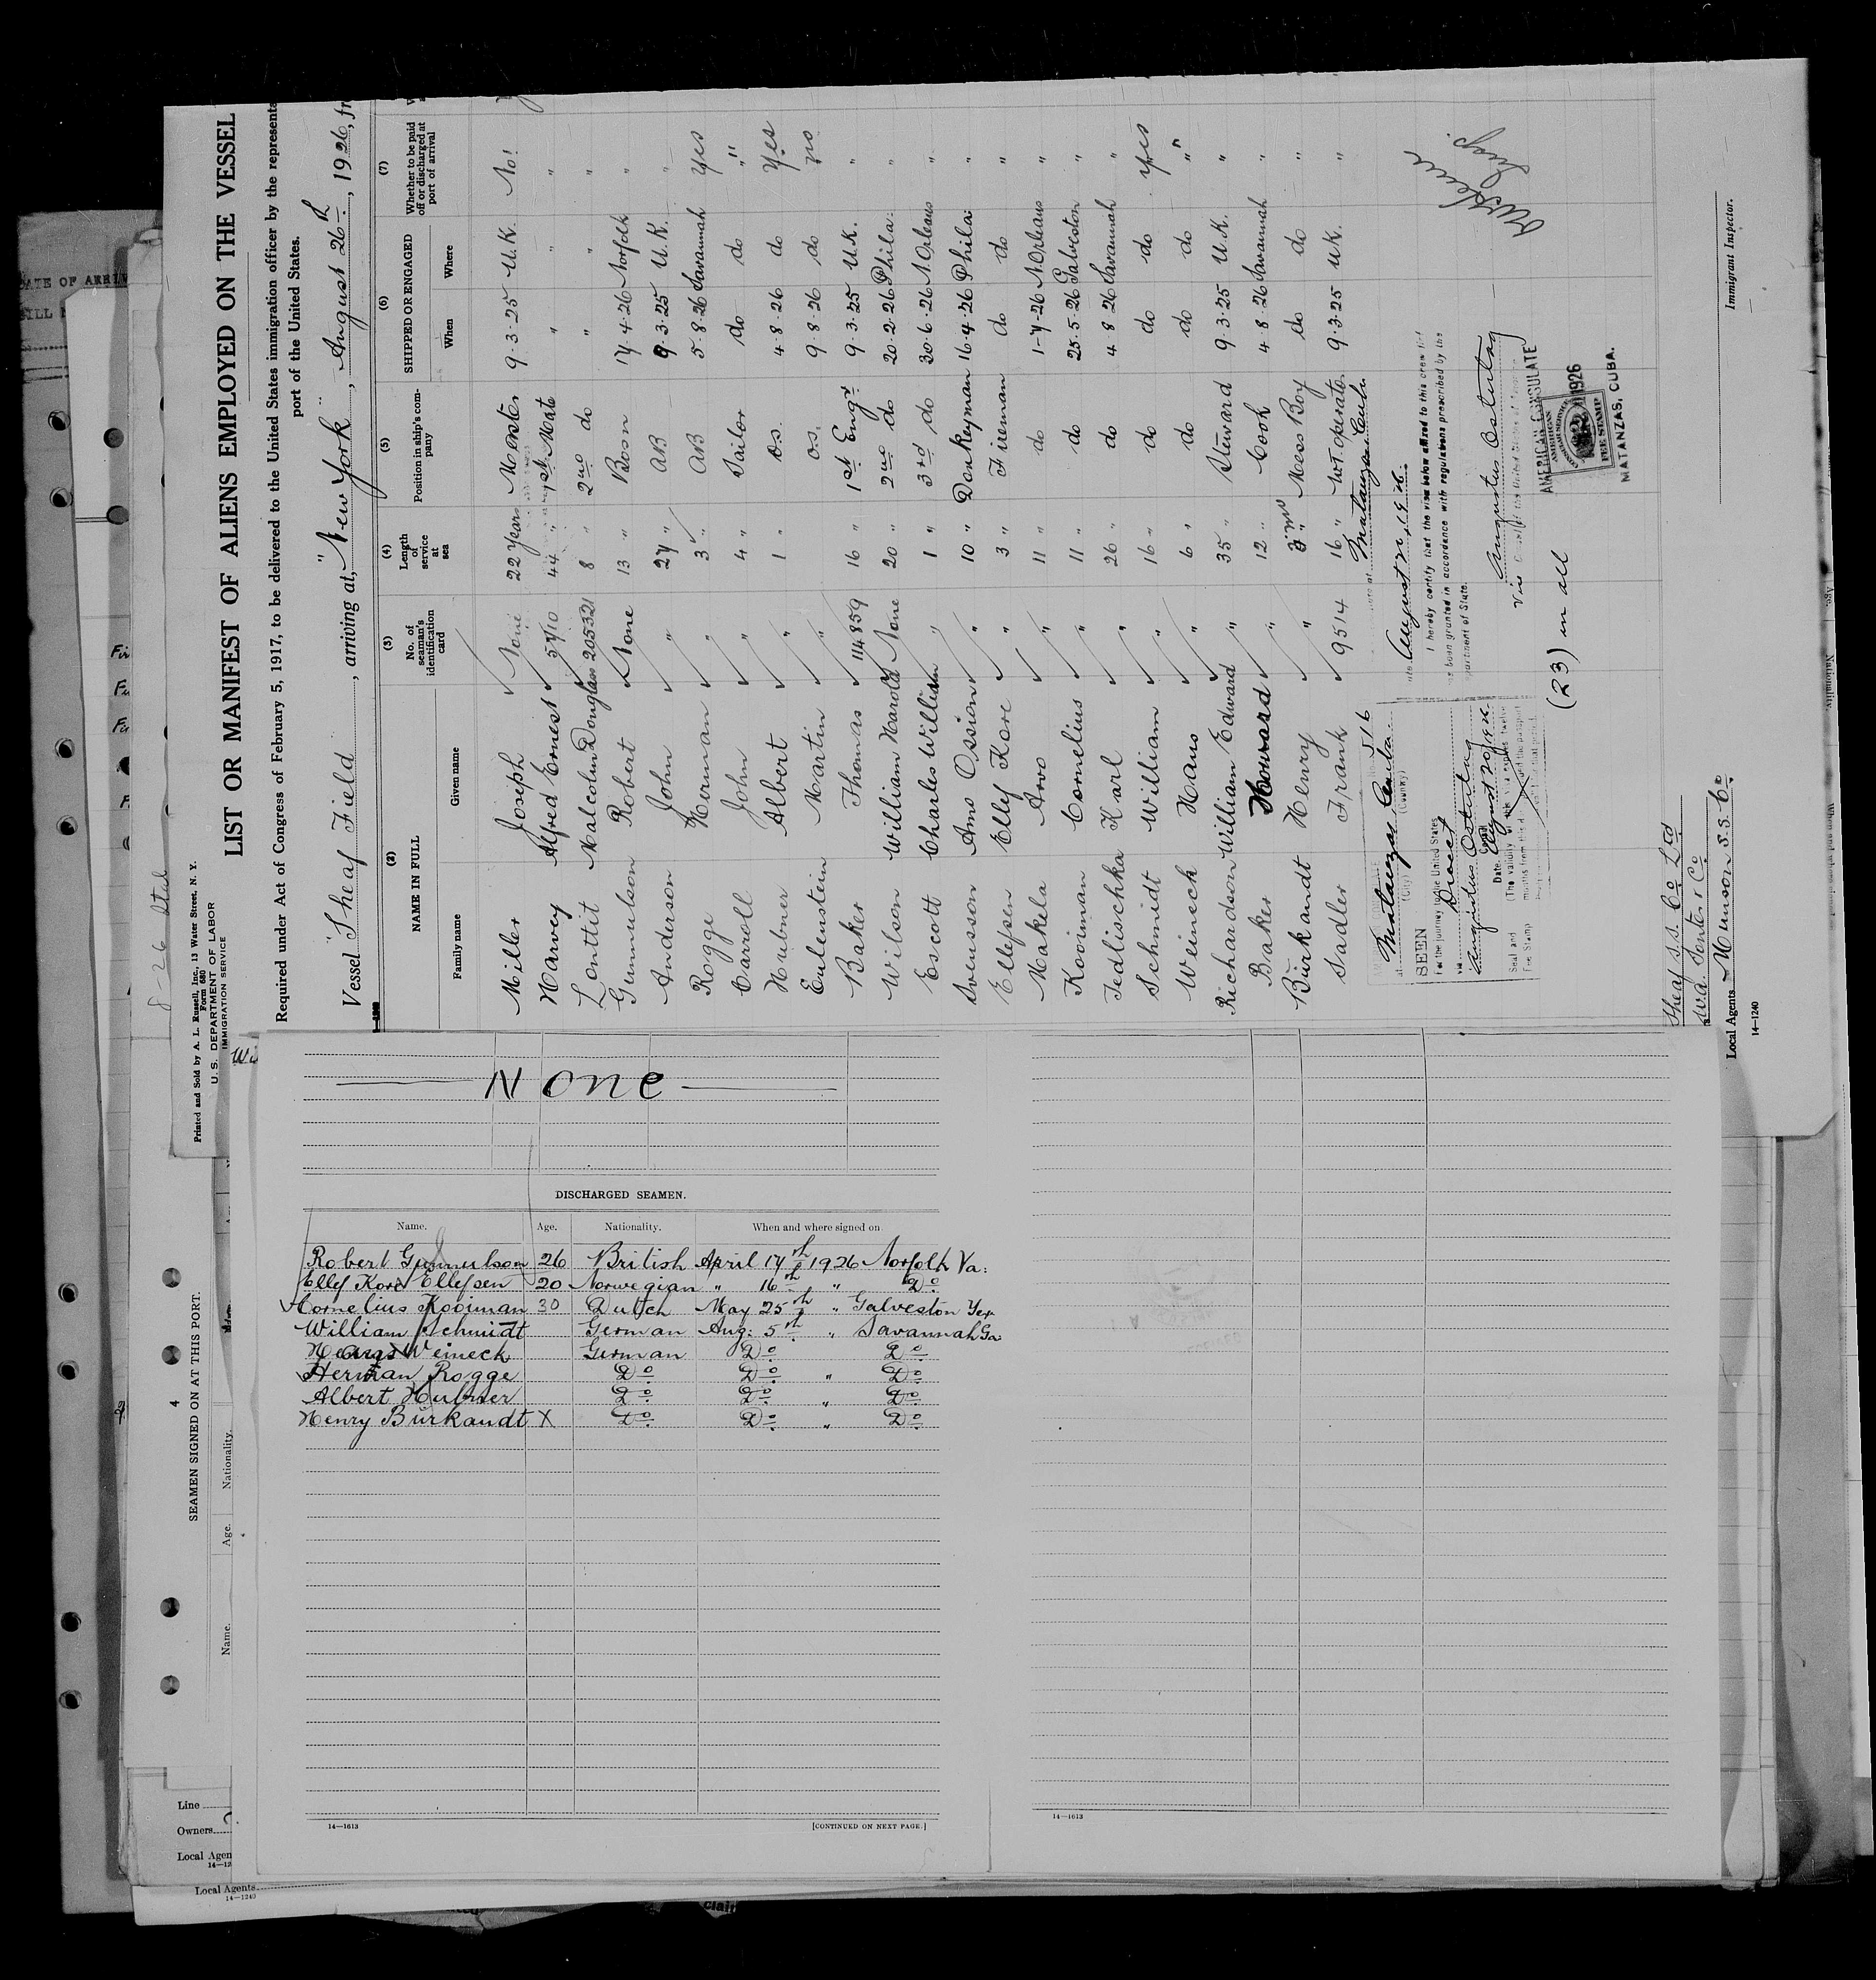 Printed and Sold by A. L. Russell, Inc., 13 Water Street, N. Y.
Form 680
U. S. DEPARTMENT OF LABOR
IMMIGRATION SERVICE
LIST OR MANIFEST OF ALIENS EMPLOYED ON THE VESSEL
Required under Act of Congress of February 5, 1917, to be delivered to the United States immigration officer by the representa
port of the United States.
Vessel "Sheaf Field", arriving at, "New York", August 26th, 1926, fr
(2) (3) (4) (5) (6) (7)
NAME IN FULL No. of seaman's identification card Length of service at sea Position in ship's company SHIPPED OR ENGAGED Whether to be paid off or discharged at port of arrival
Family name Given name When Where
Miller Joseph None 22 years Master 9.3.25 U.K. No!
Harvey Alfred Ernest 5710 44 " 1st Mate " " "
Lonttit Malcolm Douglas 205321 8 " 2nd do " " "
Gunnulson Robert None 13 " Bosn 17.4.26 Norfolk "
Anderson John " 27 " AB 9.3.25 U.K. "
Rogge Herman " 3 " AB 5.8.26 Savannah Yes
Carroll John " 4 " Sailor do do "
Hubner Albert " 1 " O.S. 4.8.26 do Yes
Eulenstein Martin " O.S. 9.8.26 do no
Baker Thomas 114859 16 " 1st Engr 9.3.25 U.K. "
Wilson William Harold None 20 " 2nd do 20.2.26 Phila: "
Escott Charles William " 1 " 3rd do 30.6.26 N.Orleans "
Svensson Arno Ossion " 10 " Donkeyman 16.4.26 Phila: "
Ellefsen Ellef Kore " 3 " Fireman do do "
Makela Arvo " 11 " do 1-7-26 N.Orleans "
Kooiman Cornelius " 11 " do 25.5.26 Galveston "
Tedlischka Karl " 26 " do 4.8.26 Savannah "
Schmidt William " 16 " do do do Yes
Weineck Hans " 6 " do do do "
Richardson William Edward " 35 " Steward 9.3.25 U.K. "
Baker Howard " 12 " Cook 4.8.26 Savannah "
Burkandt Henry " 3 mos Mess Boy do do "
Sadler Frank 9514 16 " W.T. operator 9.3.25 U.K. "
Matanzas Cuba
August 20, 1926
I hereby certify that the visa below affixed to this crew list
been granted in accordance with regulations prescribed by the
partment of State.
Augustus Ostertag
AMERICAN CONSULATE
AMERICAN
FEE STAMP
1926
MATANZAS, CUBA.
516
at Matanzas Cuba
(City) (Country)
SEEN
For the journey to the United States
via Direct
Augustus Ostertag
Consul
Date. August 20, 1926
Seal and
Fee Stamp
(The validity of
months from this d
(23) in all
Sheaf S.S. Co Ltd
Local Agents Munson S.S. Co
14—1240
Immigrant Inspector.
8-26
None
DISCHARGED SEAMEN.
Name. Age. Nationality. When and where signed on.
Robert Gunnulson 26 British April 17th 1926 Norfolk Va:
Ellef Kore Ellefsen 20 Norwegian " 16th " Do
Cornelius Kooiman 30 Dutch May 25th " Galveston Tex
William Schmidt German Aug: 5th " Savannah Ga:
Hans Weineck German Do Do
Herman Rogge Do Do " Do
Albert Hubner Do Do " Do
Henry Burkandt X Do Do " Do
14—1613
[CONTINUED ON NEXT PAGE.]
14—1613
4
SEAMEN SIGNED ON AT THIS PORT.
Name. Age. Nationality.
Line
Owners
Local Agen
14—12
Local Agents
14—1240